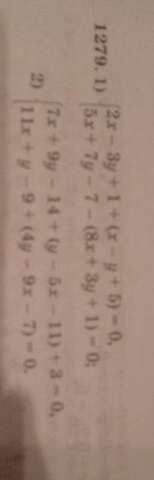 1279. 1) {2x − 3y + 1 + (x − y + 5) = 0,
5x + 7y − 7 − (8x + 3y + 1) = 0;
2) {7x + 9y − 14 + (y − 5x − 11) + 3 = 0,
11x + y − 9 + (4y − 9x − 7) = 0.